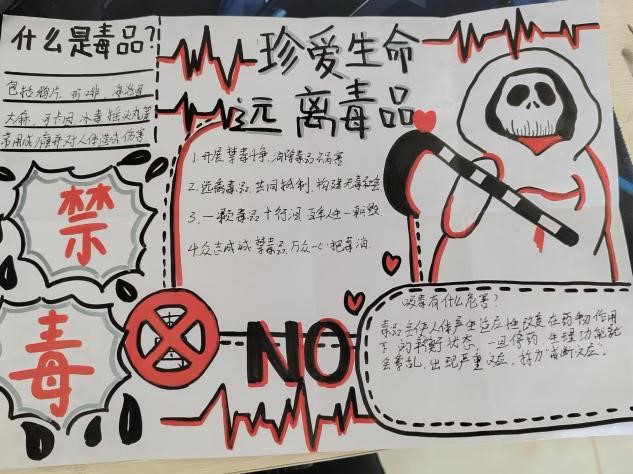 什么是毒品?
包括鸦片 吗啡 海洛因
大麻 可卡因 冰毒 摇头丸等
常用成瘾并对人体造成伤害
珍爱生命
远离毒品
1. 开展禁毒斗争,消除毒品祸害
2. 远离毒品,共同抵制,构建无毒社会
3. 一颗毒品十行泪 百年人生一朝毁
4. 众志成城禁毒品,万众一心把毒消.
禁
毒
NO
吸毒有什么危害?
毒品主作人体产生适应性改变在药物作用
下的平衡状态,一旦停药 生理功能就
会紊乱,出现严重反应,称为"戒断反应".